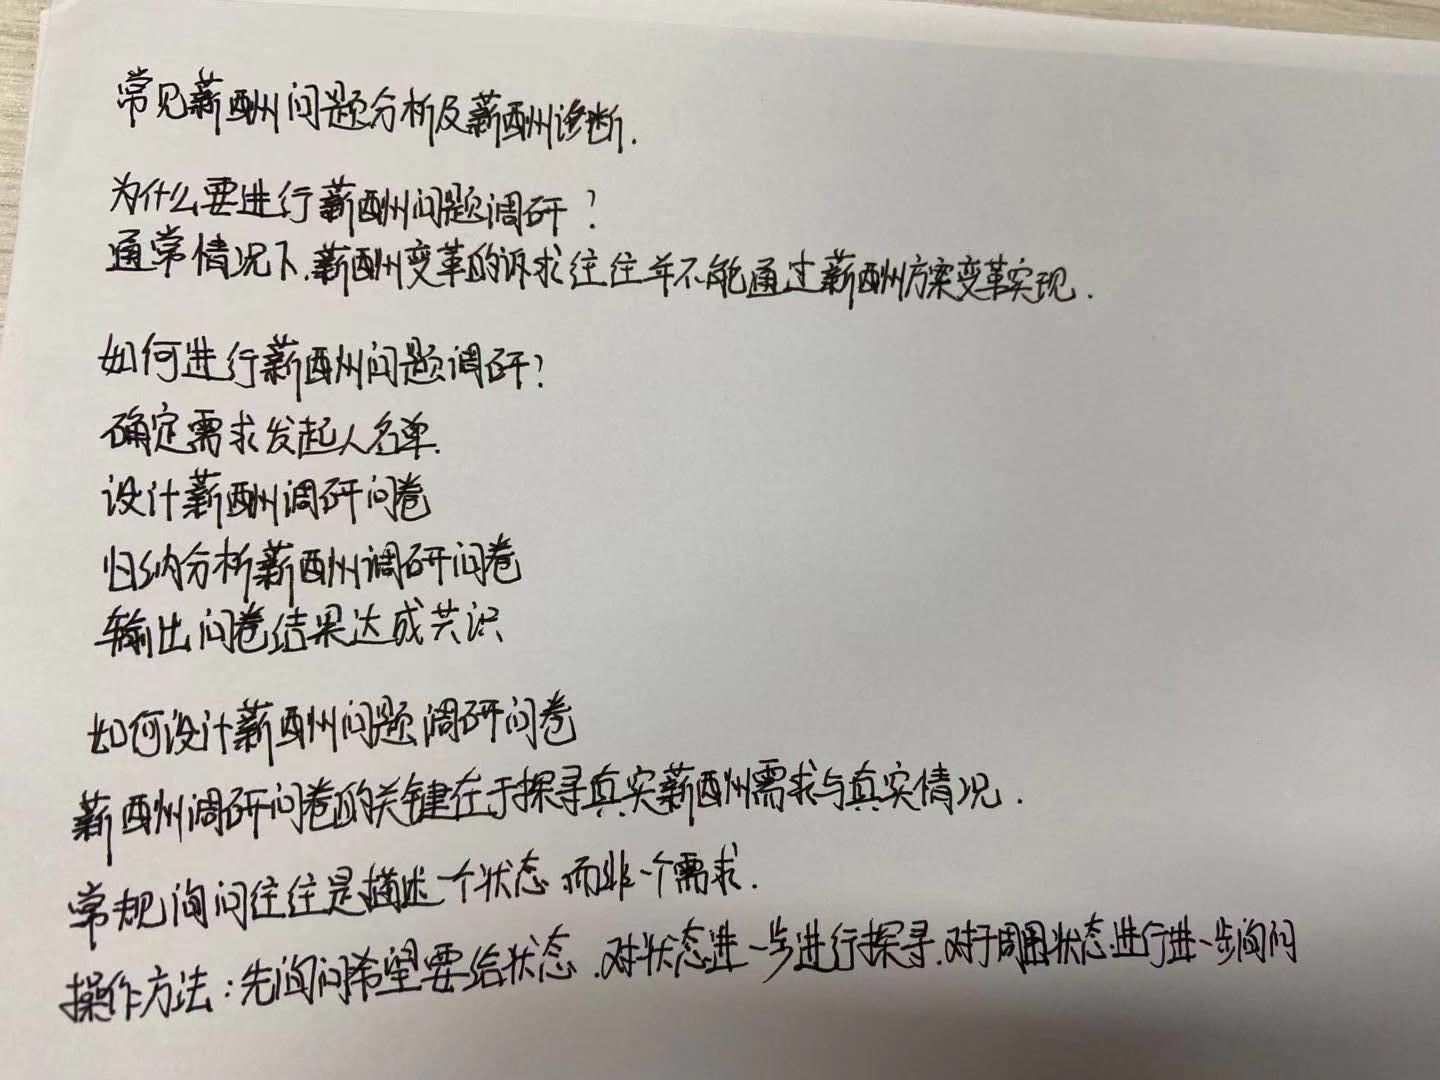 常见薪酬问题分析及薪酬诊断.
为什么要进行薪酬问题调研?
通常情况下.薪酬变革的诉求往往并不能通过薪酬方案变革实现.
如何进行薪酬问题调研?
确定需求发起人名单.
设计薪酬调研问卷
归纳分析薪酬调研问卷
输出问卷结果达成共识
如何设计薪酬问题调研问卷
薪酬调研问卷的关键在于探寻真实薪酬需求与真实情况.
常规询问往往是描述一个状态 而非一个需求.
操作方法:先询问希望要给状态.对状态进一步进行探寻.对于周围状态进行进一步询问